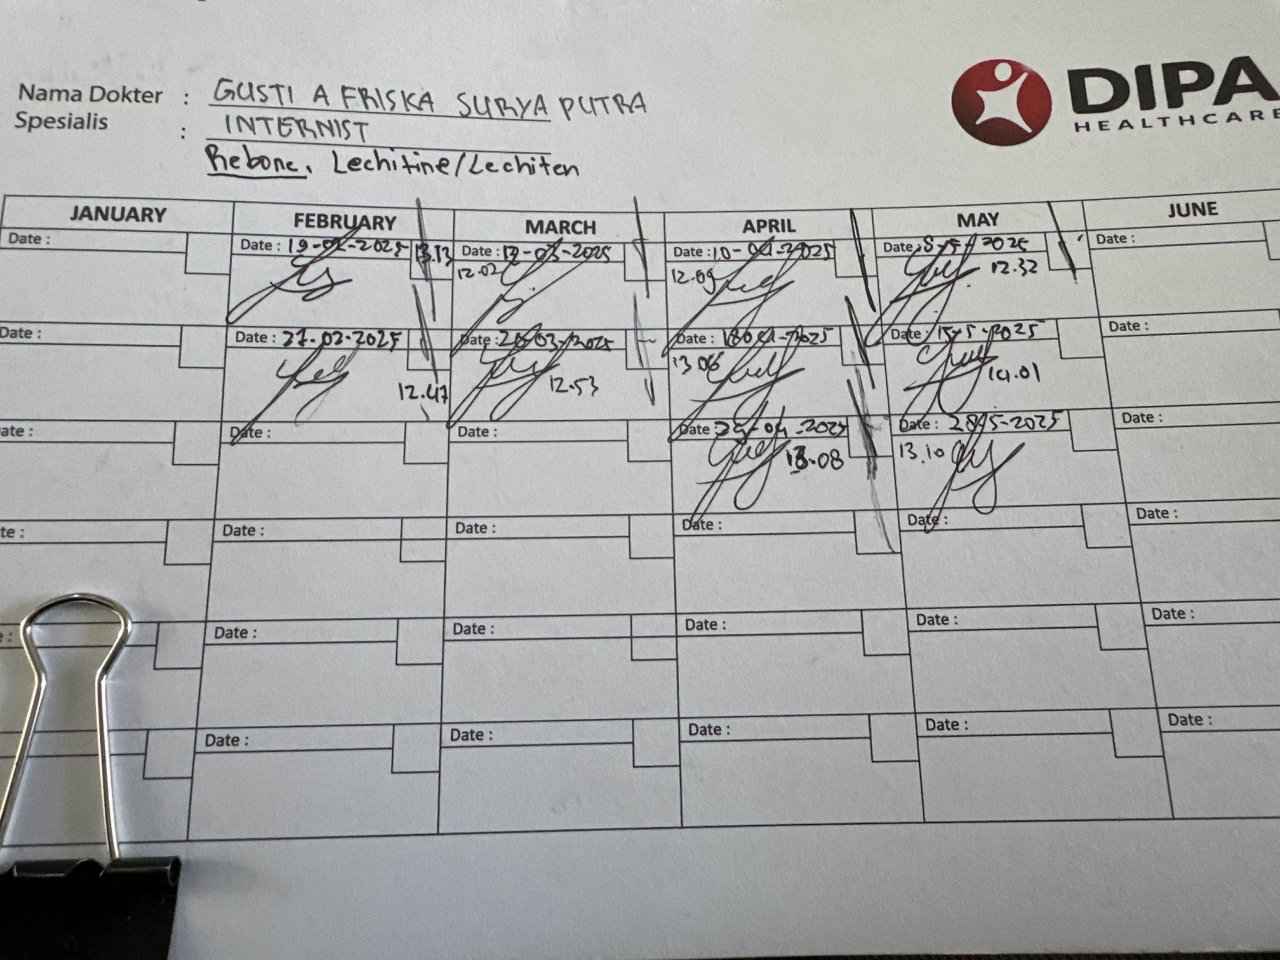 DIPA
HEALTHCARE
Nama Dokter : GUSTI A FRISKA SURYA PUTRA
Spesialis : INTERNIST
Rebone, Lechitine/Lechiten
JANUARY FEBRUARY MARCH APRIL MAY JUNE
Date : Date : 19-02-2025 13.13 Date : 12-03-2025 Date : 10-04-2025 Date : 8-5-2025 Date :
12.02 12.09 12.32
Date : Date : 27-02-2025 Date : 20-03-2025 Date : 18-04-2025 Date : 15-5-2025 Date :
12.47 12.53 13.06 14.01
ate : Date : Date : Date : 25-04-2025 Date : 28-5-2025 Date :
13.08 13.10
te : Date : Date : Date : Date : Date :
Date : Date : Date : Date : Date :
Date : Date : Date : Date : Date :